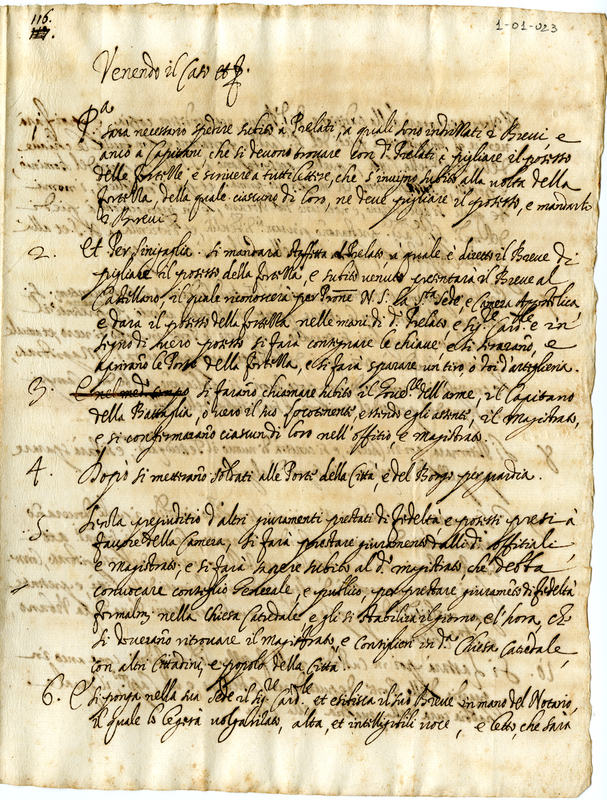 116.
1-01-023
Venendo il Caso et
P.a
1. Sara necessario spedire subito à Prelati, a quali sono indrillati i Brevi e
anco a Capitani, che si devono trovare con d.i Prelati à pigliare il posesso
delle fortelle, e scrivere a tutti lettere, che s'inviino subito alla volta della
fortella, della quale ciascuno di loro, ne deve pigliare il posesso, e mandarli
i Brevi
2. Et Per Sinigaglia. Si mandarà staffetta al Prelato, a quale è diretto il Breve di
pigliare il posesso della fortella, e subito venuto presentarà il Breve al
Castellano, il quale riconoscerà per Prone N. S. la S.ta Sede e Camera Apostolica
e darà il posesso della fortella nelle mani di d.o Prelato, e Sig.re Card.le e in
segno di vero posesso si farà consegnare le chiave e si serarano, e
aprirano le Porte della fortella, e si farà sparare un tiro o doi d'arteglieria.
3. Si farano chiamare subito il Gove.re dell'arme, il Capitano
della Battaglia, o vero il suo locotenente, essendo egli assente, il Magistrato,
e si confermarano ciascun di loro nell'offitio, e Magistrato.
4. Dopò si metterano soldati alle Porte della Città, e del Borgo per guardia.
5. Senza prejuditio d'altri giuramenti prestati di fedeltà e posessi presi à
favore della Camera, si farà prestare giuramento dalli d.i offitiali
e magistrato, e si farà sapere subito al d.o magistrato che debba
convocare consiglio Generale, e publico, per prestare giuramẽto di fedeltà
formalm.te nella Chiesa Catedale e gli si stabilirà il giorno, e l'hora, che
si doverano ritrovare il Magistrato, e Consiglieri in d.a Chiesa Catedale
con altri Cittadini, e popolo della Città.
6. E si ponga nella sua Sede il Sig.re Card.le et esibisca il suo Breve in mano del Notario,
il quale lo legera volgarizato, alta, et intelligibili voce, e letto che sarà